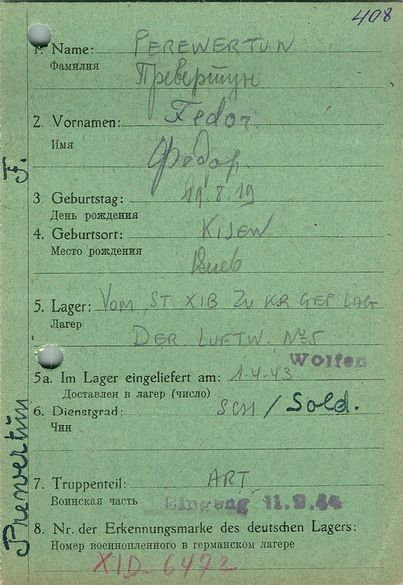 408
1. Name: PEREWERTUN
Фамилия Превертун
2. Vornamen: Fedor
Имя
Федор
3 Geburtstag: 19.8.19
День рождения
4. Geburtsort: KIJEW
Место рождения
Киев
5. Lager: VOM ST. XIB ZU KR GEF LAG
Лагер
DER LUFTW. No 5
Wolfen
5a. Im Lager eingeliefert am: 1.4.43
Доставлен в лагер (число)
6. Dienstgrad: SCH / Sold.
Чин
7. Truppenteil: ART
Воинская часть Eingang 11.2.44
8. Nr. der Erkennungsmarke des deutschen Lagers:
Номер военнопленного в германском лагере
XID 6472
Prewertun F.